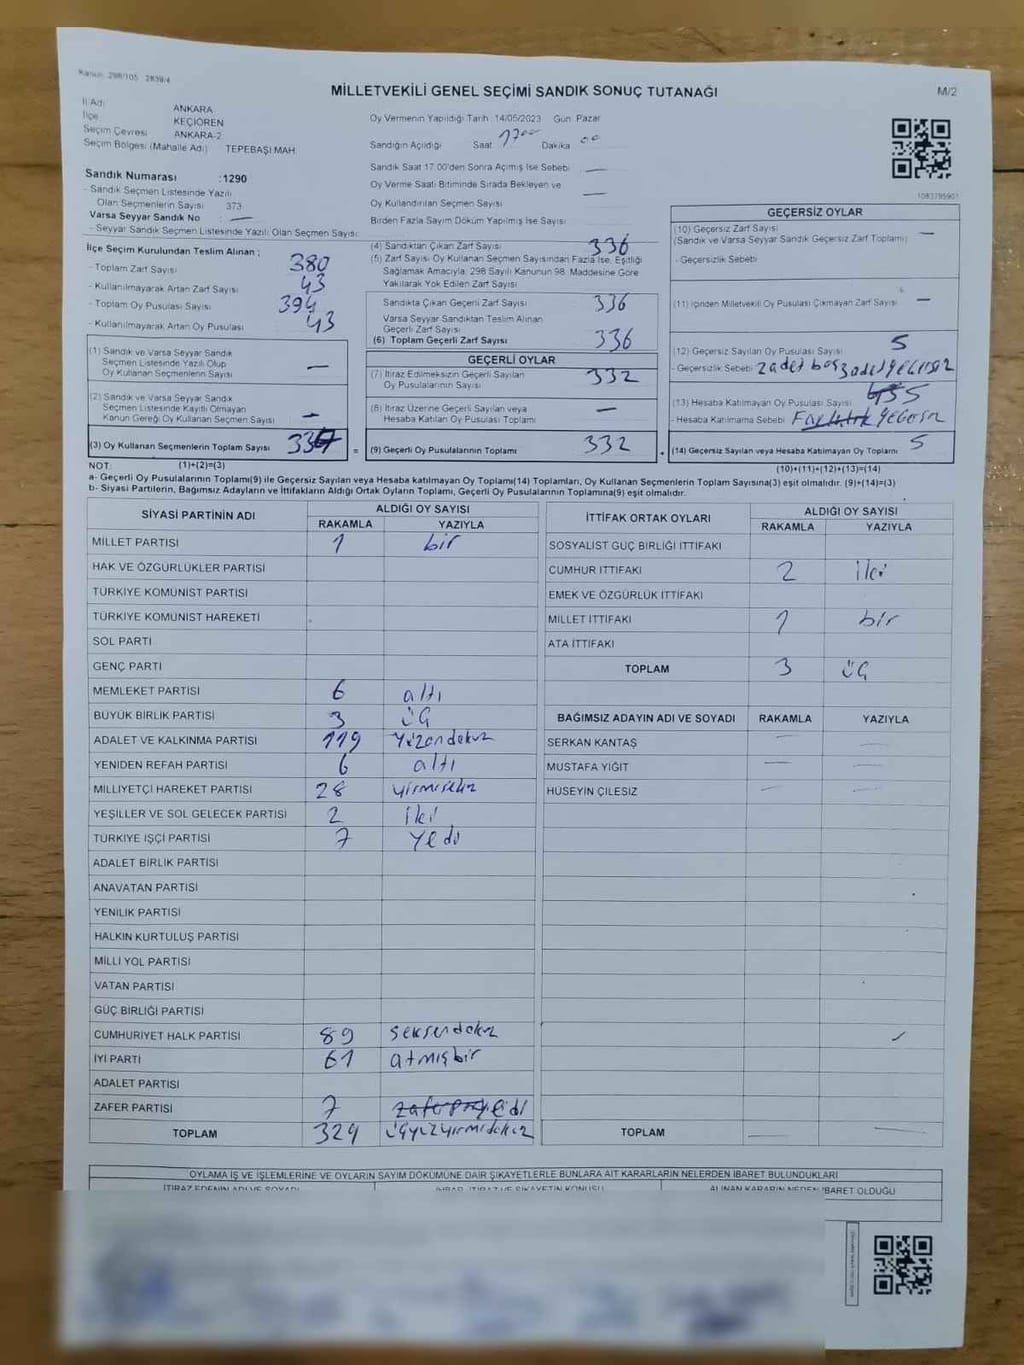 Kanun: 298/105 2839/4
MİLLETVEKİLİ GENEL SEÇİMİ SANDIK SONUÇ TUTANAĞI
M/2
İl Adı ANKARA
İlçe KEÇİÖREN
Seçim Çevresi ANKARA-2
Seçim Bölgesi (Mahalle Adı) TEPEBAŞI MAH.
Oy Vermenin Yapıldığı Tarih :14/05/2023 Gün: Pazar
Sandığın Açıldığı Saat 17 00 Dakika 00
Sandık Saat 17:00'den Sonra Açımış İse Sebebi —
Oy Verme Saati Bitiminde Sırada Bekleyen ve
Oy Kullandırılan Seçmen Sayısı —
Birden Fazla Sayım Döküm Yapılmış İse Sayısı
1083795901
Sandık Numarası :1290
- Sandık Seçmen Listesinde Yazılı
Olan Seçmenlerin Sayısı 373
Varsa Seyyar Sandık No : —
- Seyyar Sandık Seçmen Listesinde Yazılı Olan Seçmen Sayısı:
İlçe Seçim Kurulundan Teslim Alınan ;
- Toplam Zarf Sayısı 380
- Kullanılmayarak Artan Zarf Sayısı 43
- Toplam Oy Pusulası Sayısı 394
- Kullanılmayarak Artan Oy Pusulası 43
(1) Sandık ve Varsa Seyyar Sandık
Seçmen Listesinde Yazılı Olup
Oy Kullanan Seçmenlerin Sayısı —
(2) Sandık ve Varsa Seyyar Sandık
Seçmen Listesinde Kayıtlı Olmayan
Kanun Gereği Oy Kullanan Seçmen Sayısı —
(3) Oy Kullanan Seçmenlerin Toplam Sayısı =
(4) Sandıktan Çıkan Zarf Sayısı 336
(5) Zarf Sayısı Oy Kullanan Seçmen Sayısından Fazla İse, Eşitliği
Sağlamak Amacıyla, 298 Sayılı Kanunun 98. Maddesine Göre
Yakılarak Yok Edilen Zarf Sayısı
Sandıkta Çıkan Geçerli Zarf Sayısı 336
Varsa Seyyar Sandıktan Teslim Alınan
Geçerli Zarf Sayısı
(6) Toplam Geçerli Zarf Sayısı 336
GEÇERLİ OYLAR
(7) İtiraz Edilmeksizin Geçerli Sayılan
Oy Pusulalarının Sayısı 332
(8) İtiraz Üzerine Geçerli Sayılan veya
Hesaba Katılan Oy Pusulaları Toplamı —
(9) Geçerli Oy Pusulalarının Toplamı 332
GEÇERSİZ OYLAR
(10) Geçersiz Zarf Sayısı
(Sandık ve Varsa Seyyar Sandık Geçersiz Zarf Toplamı) —
- Geçersizlik Sebebi
(11) İçinden Milletvekili Oy Pusulası Çıkmayan Zarf Sayısı —
(12) Geçersiz Sayılan Oy Pusulası Sayısı 5
- Geçersizlik Sebebi 2 adet boş 3 adet geçersiz
(13) Hesaba Katılmayan Oy Pusulası Sayısı
- Hesaba Katılmama Sebebi
(14) Geçersiz Sayılan veya Hesaba Katılmayan Oy Toplamı 5
NOT: (1)+(2)=(3)
(10)+(11)+(12)+(13)=(14)
a- Geçerli Oy Pusulalarının Toplamı(9) ile Geçersiz Sayılan veya Hesaba katılmayan Oy Toplamı(14) Toplamları, Oy Kullanan Seçmenlerin Toplam Sayısına(3) eşit olmalıdır. (9)+(14)=(3)
b- Siyasi Partilerin, Bağımsız Adayların ve İttifakların Aldığı Ortak Oyların Toplamı, Geçerli Oy Pusulalarının Toplamına(9) eşit olmalıdır.
SİYASİ PARTİNİN ADI ALDIĞI OY SAYISI
RAKAMLA YAZIYLA
MİLLET PARTİSİ 1 bir
HAK VE ÖZGÜRLÜKLER PARTİSİ
TÜRKİYE KOMÜNİST PARTİSİ
TÜRKİYE KOMÜNİST HAREKETİ
SOL PARTİ
GENÇ PARTİ
MEMLEKET PARTİSİ 6 altı
BÜYÜK BİRLİK PARTİSİ 3 üç
ADALET VE KALKINMA PARTİSİ 119 yüzondokuz
YENİDEN REFAH PARTİSİ 6 altı
MİLLİYETÇİ HAREKET PARTİSİ 28 yirmisekiz
YEŞİLLER VE SOL GELECEK PARTİSİ 2 iki
TÜRKİYE İŞÇİ PARTİSİ 7 yedi
ADALET BİRLİK PARTİSİ
ANAVATAN PARTİSİ
YENİLİK PARTİSİ
HALKIN KURTULUŞ PARTİSİ
MİLLİ YOL PARTİSİ
VATAN PARTİSİ
GÜÇ BİRLİĞİ PARTİSİ
CUMHURİYET HALK PARTİSİ 89 seksendokuz
İYİ PARTİ 61 atmışbir
ADALET PARTİSİ
ZAFER PARTİSİ 7 yedi
TOPLAM 329 üçyüzyirmidokuz
İTTİFAK ORTAK OYLARI ALDIĞI OY SAYISI
RAKAMLA YAZIYLA
SOSYALİST GÜÇ BİRLİĞİ İTTİFAKI
CUMHUR İTTİFAKI 2 iki
EMEK VE ÖZGÜRLÜK İTTİFAKI
MİLLET İTTİFAKI 1 bir
ATA İTTİFAKI
TOPLAM 3 üç
BAĞIMSIZ ADAYIN ADI VE SOYADI RAKAMLA YAZIYLA
SERKAN KANTAŞ — —
MUSTAFA YİĞİT — —
HÜSEYİN ÇİLESİZ — —
TOPLAM — —
OYLAMA İŞ VE İŞLEMLERİNE VE OYLARIN SAYIM DÖKÜMÜNE DAİR ŞİKAYETLERLE BUNLARA AİT KARARLARIN NELERDEN İBARET BULUNDUKLARI
İTİRAZ EDENİN ADI VE SOYADI
ALINAN KARARIN NEDEN İBARET OLDUĞU